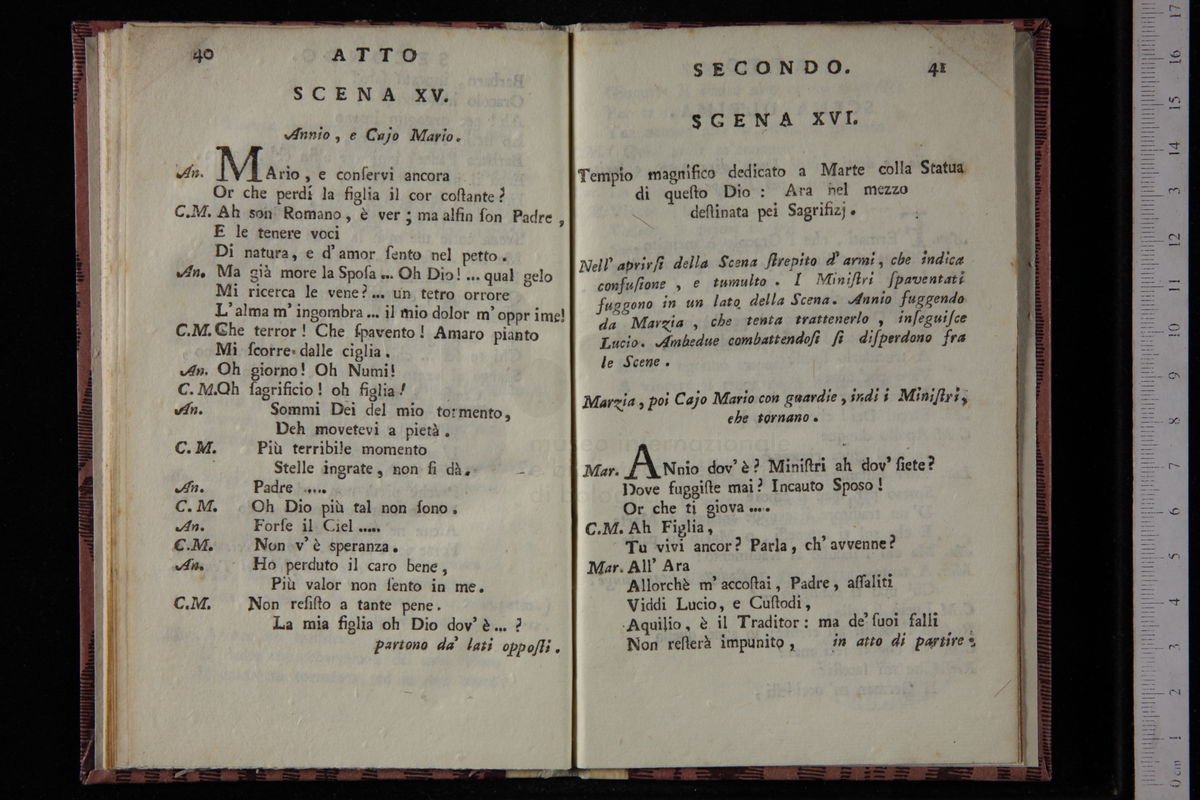 40 ATTO
SCENA XV.
Annio, e Cajo Mario.
An. MArio, e conſervi ancora
Or che perdi la figlia il cor coſtante?
C.M. Ah son Romano, è ver; ma alfin ſon Padre,
E le tenere voci
Di natura, e d'amor ſento nel petto.
An. Ma già more la Spoſa... Oh Dio!... qual gelo
Mi ricerca le vene?... un tetro orrore
L'alma m'ingombra... il mio dolor m'opprime!
C.M. Che terror! Che ſpavento! Amaro pianto
Mi ſcorre dalle ciglia.
An. Oh giorno! Oh Numi!
C.M. Oh ſagrificio! oh figlia!
An. Sommi Dei del mio tormento,
Deh movetevi a pietà.
C.M. Più terribile momento
Stelle ingrate, non ſi dà.
An. Padre .....
C.M. Oh Dio più tal non ſono.
An. Forſe il Ciel .....
C.M. Non v'è speranza.
An. Ho perduto il caro bene,
Più valor non ſento in me.
C.M. Non reſiſto a tante pene.
La mia figlia oh Dio dov'è... ?
partono da' lati oppoſti.
SECONDO. 41
SCENA XVI.
Tempio magnifico dedicato a Marte colla Statua
di queſto Dio : Ara nel mezzo
deſtinata pei Sagrifizj.
Nell' aprirſi della Scena ſtrepito d'armi, che indica
confuſione, e tumulto. I Miniſtri ſpaventati
fuggono in un lato della Scena. Annio fuggendo
da Marzia, che tenta trattenerlo, inſeguiſce
Lucio. Ambedue combattendoſi ſi diſperdono fra
le Scene.
Marzia, poi Cajo Mario con guardie, indi i Miniſtri,
che tornano.
Mar. ANnio dov'è? Miniſtri ah dov'ſiete?
Dove fuggiſte mai? Incauto Sposo!
Or che ti giova ....
C.M. Ah Figlia,
Tu vivi ancor? Parla, ch'avvenne?
Mar. All' Ara
Allorchè m'accoſtai, Padre, aſſaliti
Viddi Lucio, e Cuſtodi,
Aquilio, è il Traditor: ma de' ſuoi falli
Non reſterà impunito, in atto di partire.